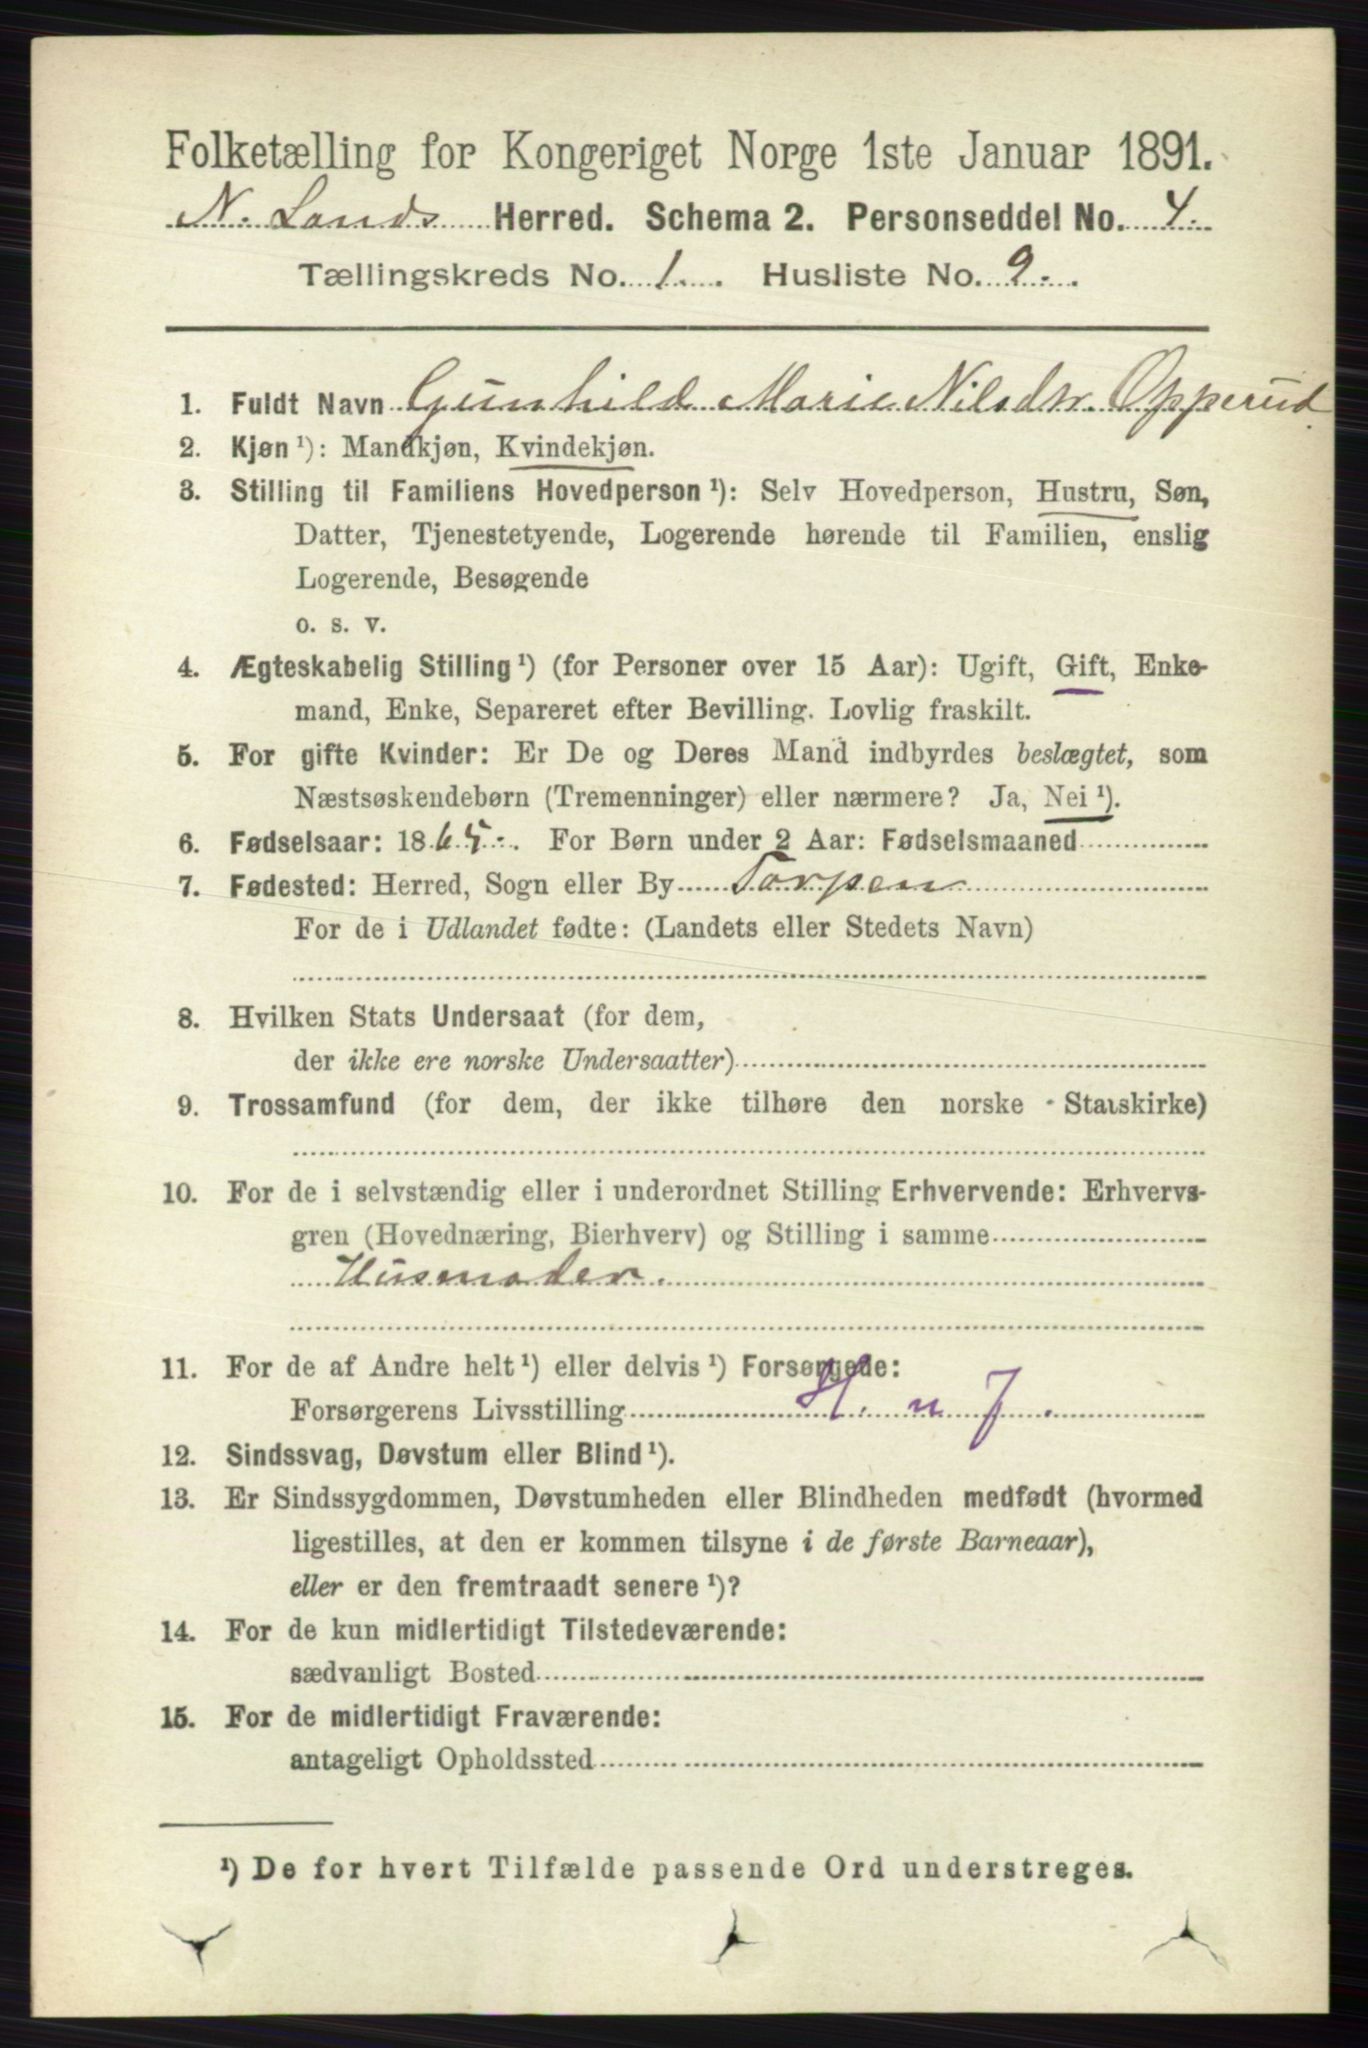 Folketælling for Kongeriget Norge 1ste Januar 1891.
N. Lands Herred. Schema 2. Personseddel No. 4.
Tællingskreds No. 1. Husliste No. 9.
1. Fuldt Navn Gunhild Marie Nilsdtr. Opperud
2. Kjøn ¹): Mandkjøn, Kvindekjøn.
3. Stilling til Familiens Hovedperson ¹): Selv Hovedperson, Hustru, Søn,
Datter, Tjenestetyende, Logerende hørende til Familien, enslig
Logerende, Besøgende
o. s. v.
4. Ægteskabelig Stilling ¹) (for Personer over 15 Aar): Ugift, Gift, Enke-
mand, Enke, Separeret efter Bevilling. Lovlig fraskilt.
5. For gifte Kvinder: Er De og Deres Mand indbyrdes beslægtet, som
Næstsøskendebørn (Tremenninger) eller nærmere? Ja, Nei ¹).
6. Fødselsaar: 1865. For Børn under 2 Aar: Fødselsmaaned
7. Fødested: Herred, Sogn eller By Torpen
For de i Udlandet fødte: (Landets eller Stedets Navn)
8. Hvilken Stats Undersaat (for dem,
der ikke ere norske Undersaatter)
9. Trossamfund (for dem, der ikke tilhøre den norske Statskirke)
10. For de i selvstændig eller i underordnet Stilling Erhvervende: Erhvervs-
gren (Hovednæring, Bierhverv) og Stilling i samme
Husmoder.
11. For de af Andre helt ¹) eller delvis ¹) Forsørgede:
Forsørgerens Livsstilling H. m J.
12. Sindssvag, Døvstum eller Blind ¹).
13. Er Sindssygdommen, Døvstumheden eller Blindheden medfødt (hvormed
ligestilles, at den er kommen tilsyne i de første Barneaar),
eller er den fremtraadt senere ¹)?
14. For de kun midlertidigt Tilstedeværende:
sædvanligt Bosted
15. For de midlertidigt Fraværende:
antageligt Opholdssted
¹) De for hvert Tilfælde passende Ord understreges.